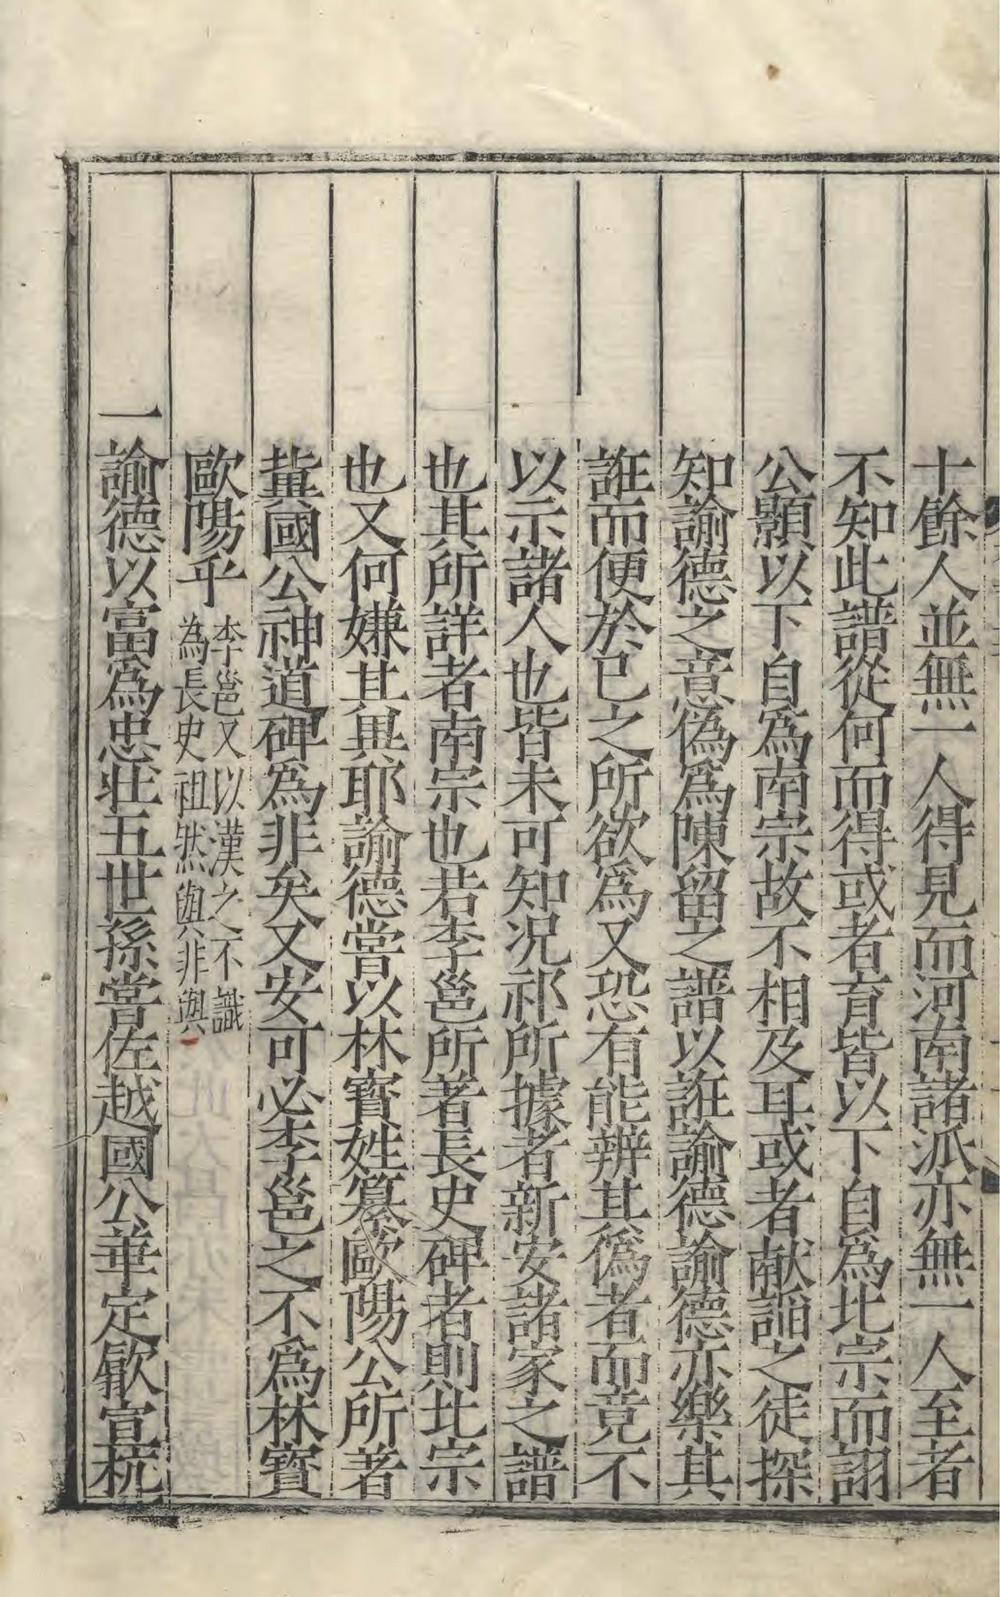 十餘人並無一人得見而河南諸派亦無一人至者
不知此譜從何而得或者育皆以下自為北宗而詡
公顯以下自為南宗故不相及耳或者献諂之徒探
知諭德之意偽為陳留之譜以誑諭德諭德亦樂其
誑而便於已之所欲為又恐有能辨其偽者而竟不
以示諸人也皆未可知况祁所據者新安諸家之譜
也其所詳者南宗也若李邕所著長史碑者則北宗
也又何嫌其異耶諭德嘗以林寳姓纂歐陽公所著
冀國公神道碑為非矣又安可必李邕之不為林寳
歐陽乎李邕又以漢之不識為長史祖然與非與
一諭德以富為忠壯五世孫嘗佐越國公華定歙宣杭